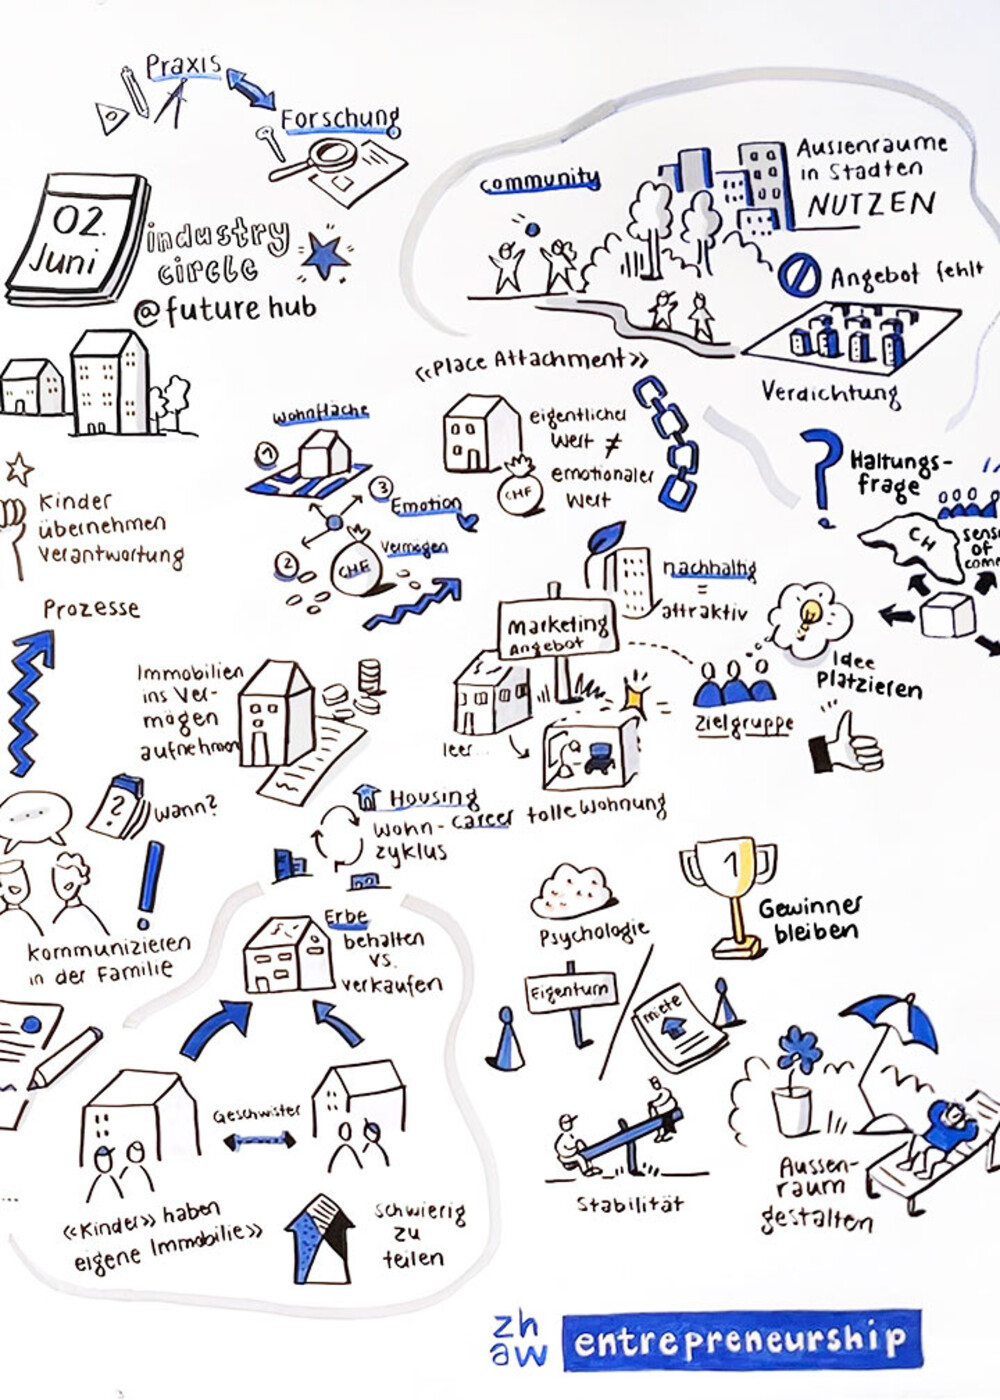 Praxis
Forschung
02.
Juni
industry
circle
@future hub
community
Aussenräume
in Städten
NUTZEN
Angebot fehlt
Verdichtung
«Place Attachment»
wohnfläche
1
3
Emotion
2
Vermögen
CHF
eigentlicher
Wert ≠
emotionaler
Wert
CHF
Haltungs-
frage
CH
sense
of
Kinder
übernehmen
Verantwortung
Prozesse
nachhaltig
=
attraktiv
Marketing
Angebot
Idee
Platzieren
Immobilien
ins Ver-
mögen
aufnehmen
leer...
=
Zielgruppe
tolle Wohnung
?
Wann?
Housing
career
Wohn-
zyklus
kommunizieren
in der Familie
Erbe
behalten
vs.
verkaufen
Psychologie
1
Gewinner
bleiben
Eigentum
Miete
Geschwister
«Kinder» haben
eigene Immobilie»
schwierig
zu
teilen
Stabilität
Aussen-
raum
gestalten
zh
aw
entrepreneurship